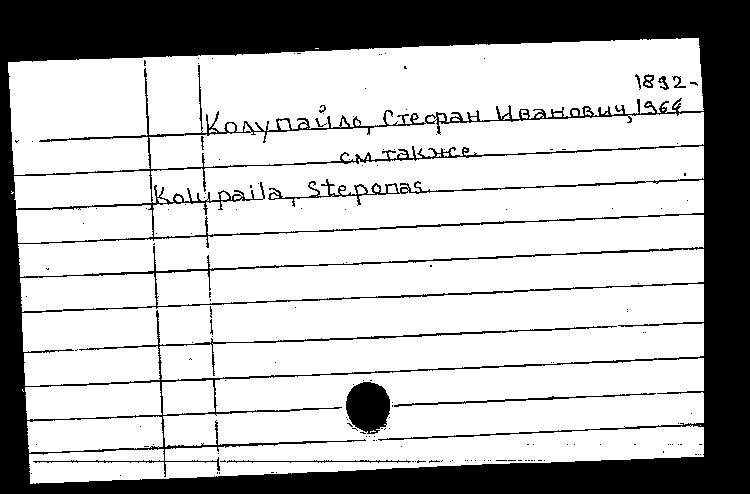 1892-
Колупайло, Стефан Иванович, 1964
см. также
Kolupaila, Steponas